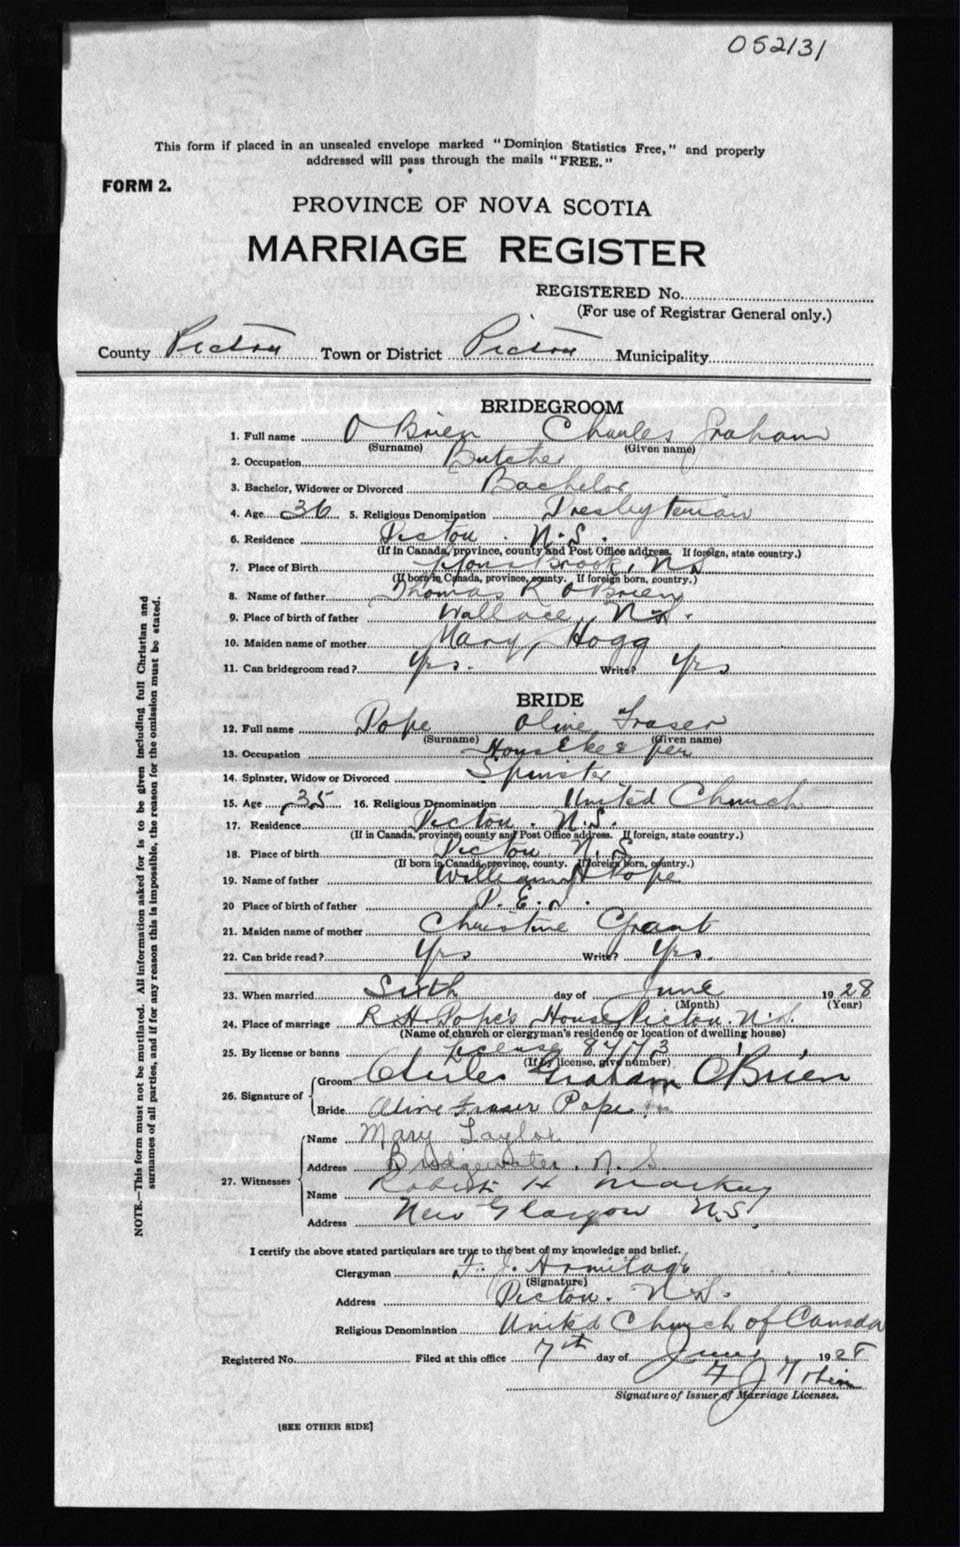 052131
This form if placed in an unsealed envelope marked "Dominion Statistics Free," and properly
addressed will pass through the mails "FREE."
FORM 2.
PROVINCE OF NOVA SCOTIA
MARRIAGE REGISTER
REGISTERED No.
(For use of Registrar General only.)
County Pictou Town or District Pictou Municipality
BRIDEGROOM
1. Full name O'Brien Charles Graham
(Surname) (Given name)
2. Occupation Butcher
3. Bachelor, Widower or Divorced Bachelor
4. Age 36 5. Religious Denomination Presbyterian
6. Residence Pictou. N.S.
(If in Canada, province, county and Post Office address. If foreign, state country.)
7. Place of Birth Lyons Brook, N.S
(If born in Canada, province, county. If foreign born, country.)
8. Name of father Thomas R O'Brien
9. Place of birth of father Wallace N.S.
10. Maiden name of mother Mary Hogg
11. Can bridegroom read? Yes. Write? Yes
BRIDE
12. Full name Pope Olive Fraser
(Surname) (Given name)
13. Occupation Housekeeper
14. Spinster, Widow or Divorced Spinster
15. Age 35 16. Religious Denomination United Church
17. Residence Pictou. N.S.
(If in Canada, province, county and Post Office address. If foreign, state country.)
18. Place of birth Pictou N.S
(If born in Canada, province, county. If foreign born, country.)
19. Name of father William H Pope
20 Place of birth of father P.E.I.
21. Maiden name of mother Christine Grant
22. Can bride read? Yes Write? Yes.
23. When married Sixth day of June 1928
(Month) (Year)
24. Place of marriage R.H. Pope's House, Pictou, N.S.
(Name of church or clergyman's residence or location of dwelling house)
25. By license or banns License 8773
(If by license, give number)
26. Signature of Groom Charles Graham O'Brien
Bride Olive Fraser Pope
27. Witnesses Name Mary Taylor
Address Bridgewater. N.S.
Name Robert H Mackay
Address New Glasgow N.S.
I certify the above stated particulars are true to the best of my knowledge and belief.
Clergyman F. J. Armitage
(Signature)
Address Pictou. N.S.
Religious Denomination United Church of Canada
Registered No. Filed at this office 7th day of June 1928
F J
Signature of Issuer of Marriage Licenses.
[SEE OTHER SIDE]
NOTE.—This form must not be mutilated. All information asked for is to be given including full Christian and
surnames of all parties, and if for any reason this is impossible, the reason for the omission must be stated.